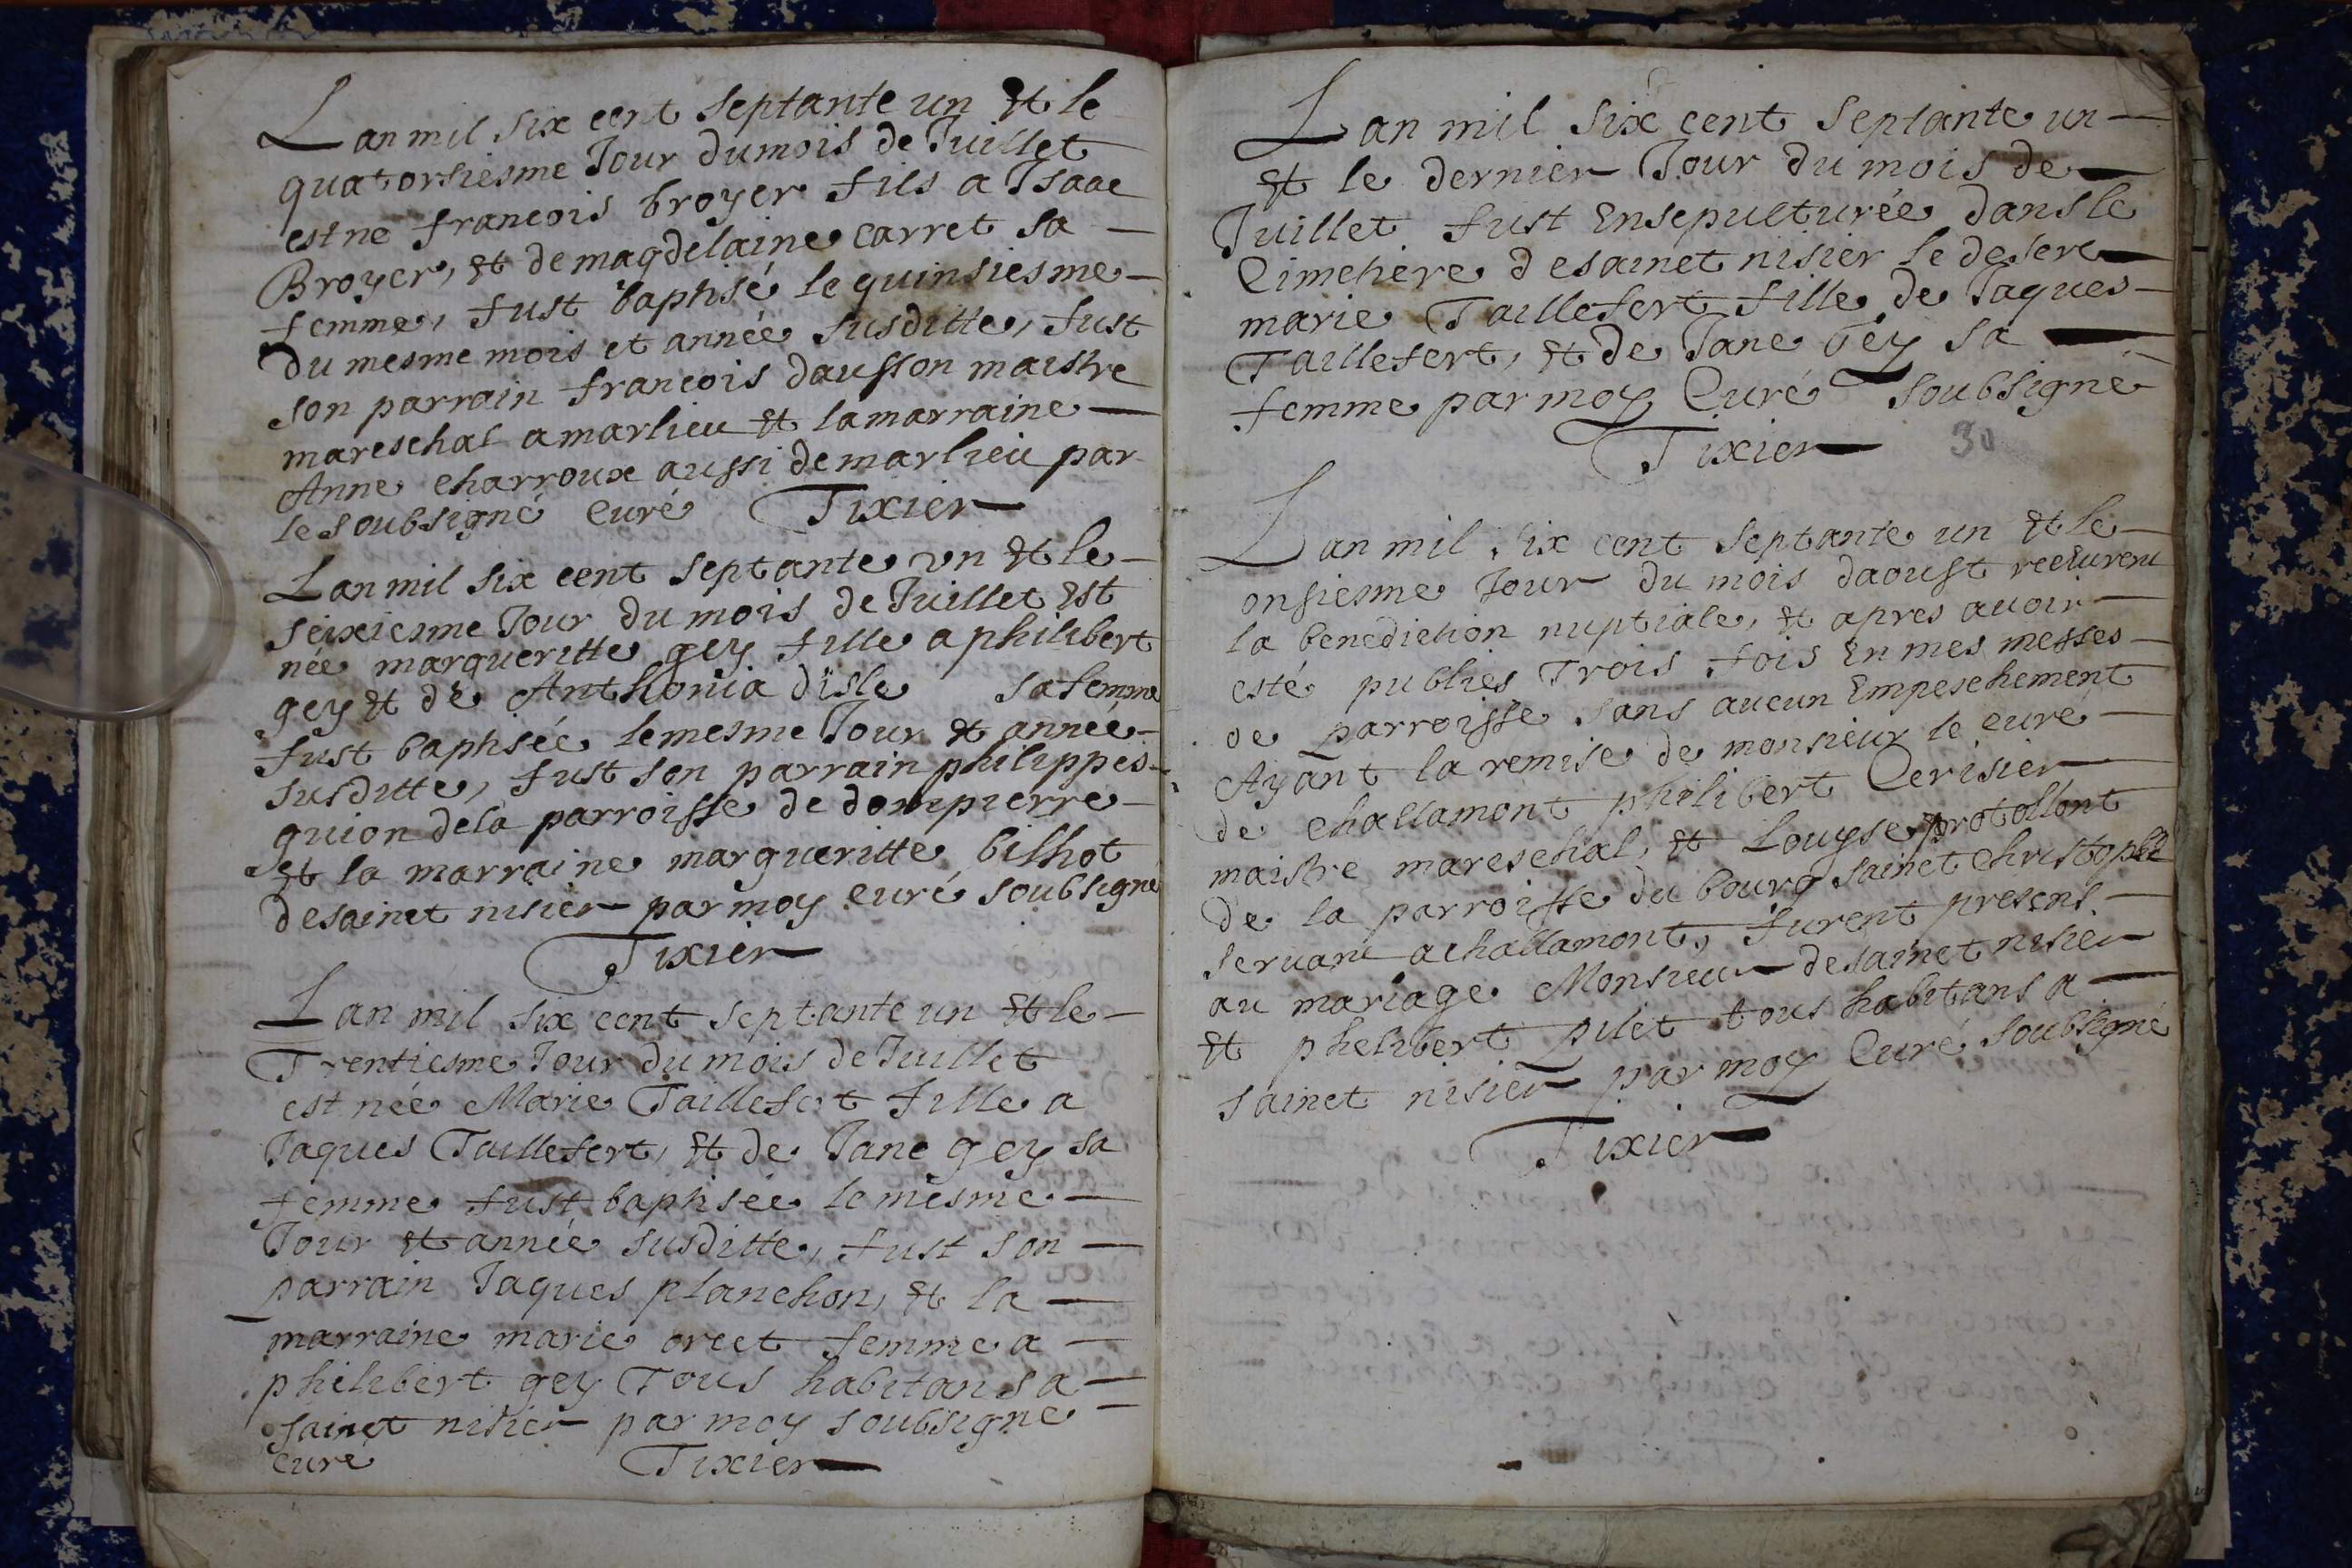 Lan mil six cent septante un et le
quatorsiesme Jour du mois de Juillet
est ne françois broyer fils a Isaac
Broyer, et de magdelaine carret sa
femme, fust baptisé le quinsiesme
du mesme mois et année susditte, fust
son parrain françois dausson maistre
mareschal a marlieu et la marraine
Anne charroux aussi de marlieu par
le soubsigné Curé Tixier
Lan mil six cent septante un et le
seixiesme Jour du mois de Juillet Est
née margueritte gey fille a philibert
gey et de Anthonia disle sa femme
fust baptisée le mesme Jour et année
susditte, fust son parrain philippes
guion de la parroisse de dompierre
et la marraine margueritte bilhot
de sainct nisier par moy curé soubsigne
Tixier
Lan mil six cent septante un et le
Trentiesme Jour du mois de Juillet
est née Marie Taillefert fille a
Jaques Taillefert, et de Jane gey sa
femme fust baptisée le mesme
Jour et année susditte, fust son
parrain Jaques planchon, et la
marraine marie orcet femme a
philibert gey Tous habitans a
sainct nisier par moy soubsigne
curé Tixier
Lan mil six cent septante un
et le dernier Jour du mois de
Juillet fust Ensepulturée dans le
Cimetière de sainct nisier le desert
marie Taillefert fille de Jaques
Taillefert, et de Jane Gey sa
femme par moy Curé soubsigné
Tixier 30
Lan mil six cent septante un et le
onsiesme Jour du mois daoust receurent
la benediction nuptiale, et apres avoir
esté publiés Trois fois En mes messes
de parroisse sans aucun Empeschement
Ayant la remise de monsieur le curé
de challamont philibert Cerisier
maistre mareschal, et Louyse protollont
de la parroisse du bourg sainct Christophle
servant a challamont, furent presens
au mariage Monsieur de sainct nisier
et phelibert pilet tous habitans a
sainct nisier par moy Curé soubsigné
Tixier